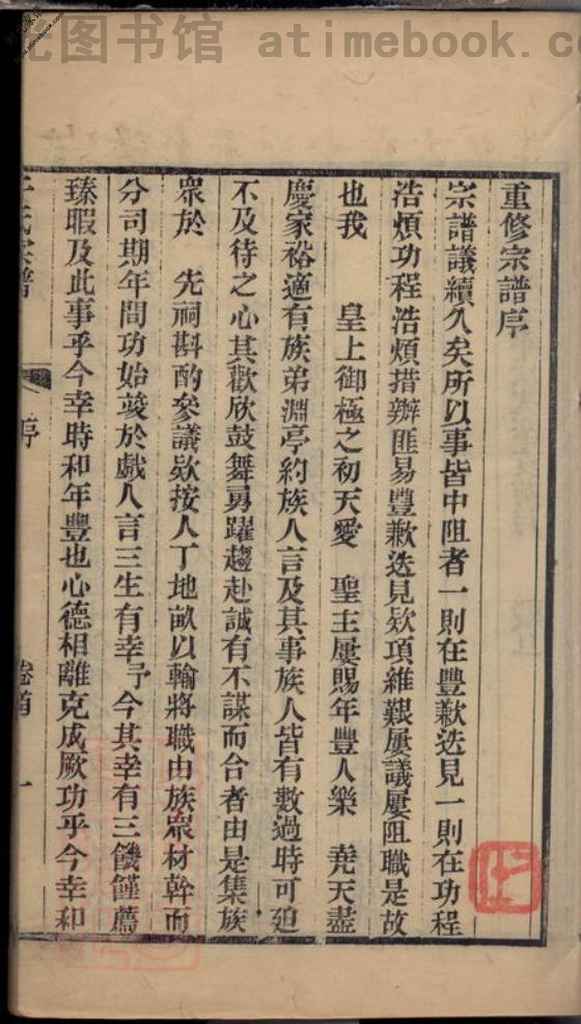 光图书馆 atimebook.co
重修宗譜序
宗譜議續久矣所以事皆中阻者一則在豐歉迭見一則在功程
浩煩功程浩煩措辦匪易豐歉迭見欵項維艱屢議屢阻職是故
也我 皇上御極之初天愛 聖主屢賜年豐人樂 堯天盡
慶家裕適有族弟淵亭約族人言及其事族人皆有數過時可廹
不及待之心其歡欣鼓舞勇躍趨赴誠有不謀而合者由是集族
眾於 先祠斟酌參議欵按人丁地畝以輸將職由族眾材幹而
分司期年間功始竣於戲人言三生有幸予今其幸有三饑饉薦
臻暇及此事乎今幸時和年豐也心德相離克成厥功乎今幸和
氏宗譜 序 卷首 一